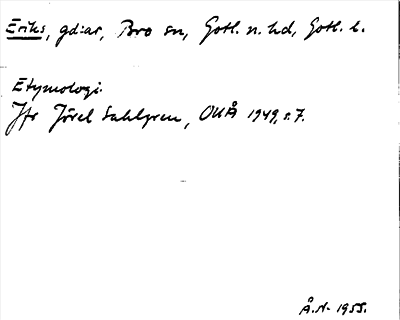 Eriks, gdar, Bro sn, Gotl. n. hd, Gotl. l.
Etymologi.
Jfr Jöran Sahlgren, OUÅ 1949, s. 7.
Å.N. 1955.